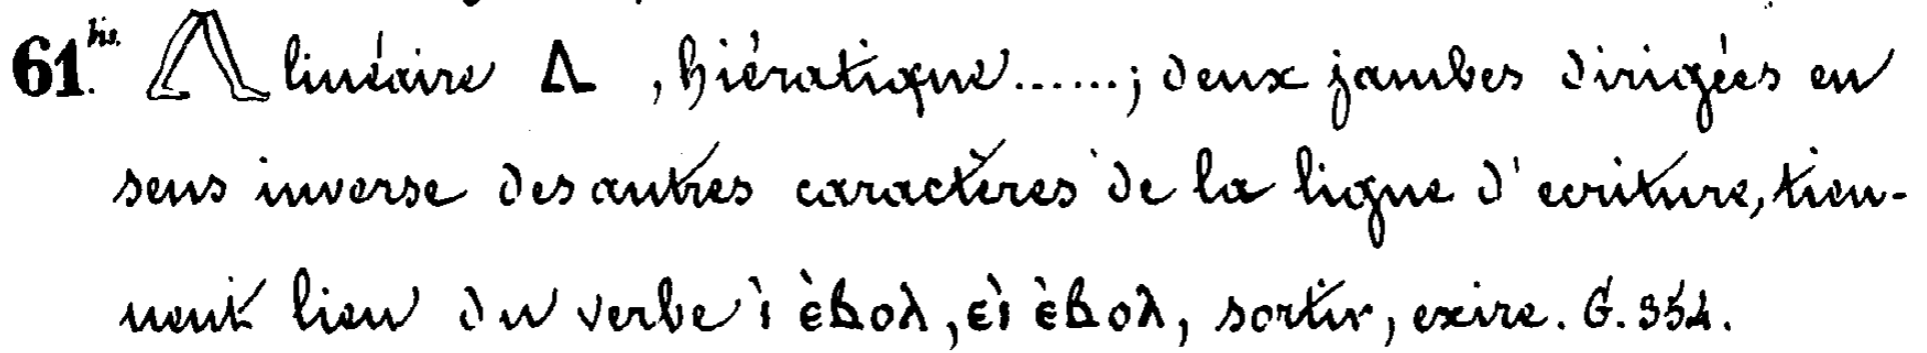 61 bis. 𓂻 linéaire Δ , hiératique......; deux jambes dirigées en
sens inverse des autres caractères de la ligne d'ecriture, tien-
nent lieu du verbe ì ⲉ̀ⲃⲟⲗ, ⲉⲓ̀ ⲉ̀ⲃⲟⲗ, sortir, exire. G. 354.